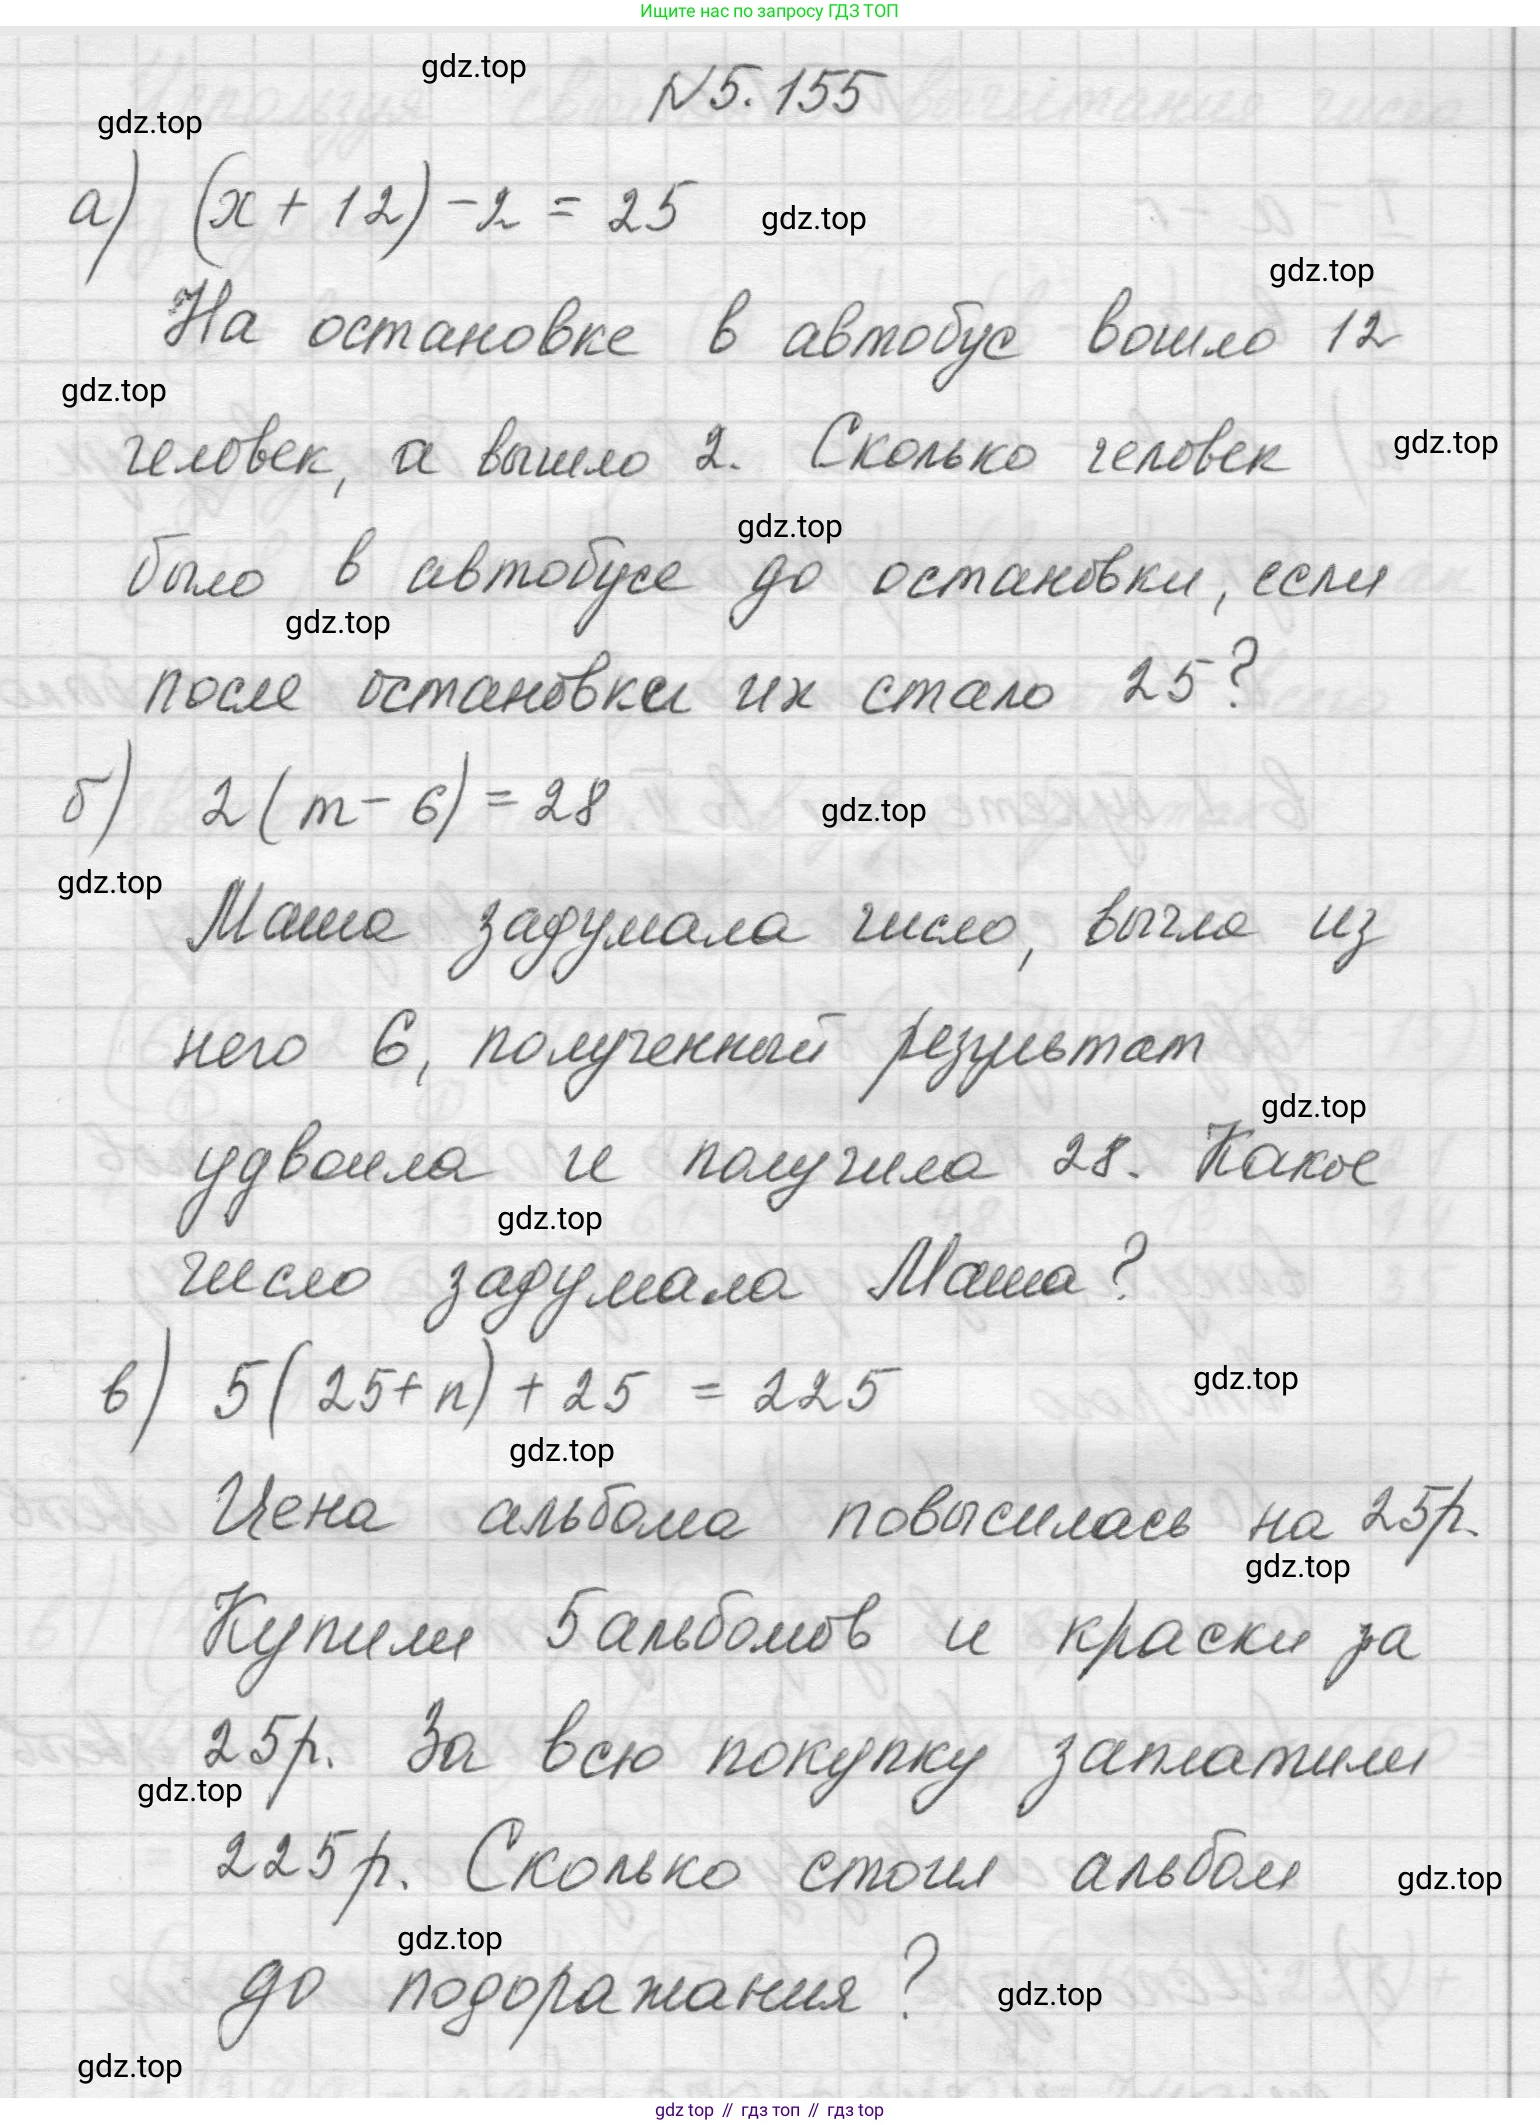 Ищите нас по запросу ГДЗ ТОП
gdz.top
№5.155
gdz.top
а) (x + 12) - 2 = 25
gdz.top
gdz.top
На остановке в автобус вошло 12
gdz.top
человек, а вышло 2. Сколько человек
gdz.top
gdz.top
было в автобусе до остановки, если
gdz.top
после остановки их стало 25?
б) 2(m - 6) = 28
gdz.top
gdz.top
Маша задумала число, вычла из
него 6, полученный результат
gdz.top
удвоила и получила 28. Какое
gdz.top
число задумала Маша?
в) 5(25 + n) + 25 = 225
gdz.top
gdz.top
Цена альбома повысилась на 25р.
gdz.top
Купили 5 альбомов и краски за
25р. За всю покупку заплатили
gdz.top
225р. Сколько стоил альбом
gdz.top
gdz.top
до подоражания?
gdz.top
gdz.top
gdz top // гдз топ // гдз top